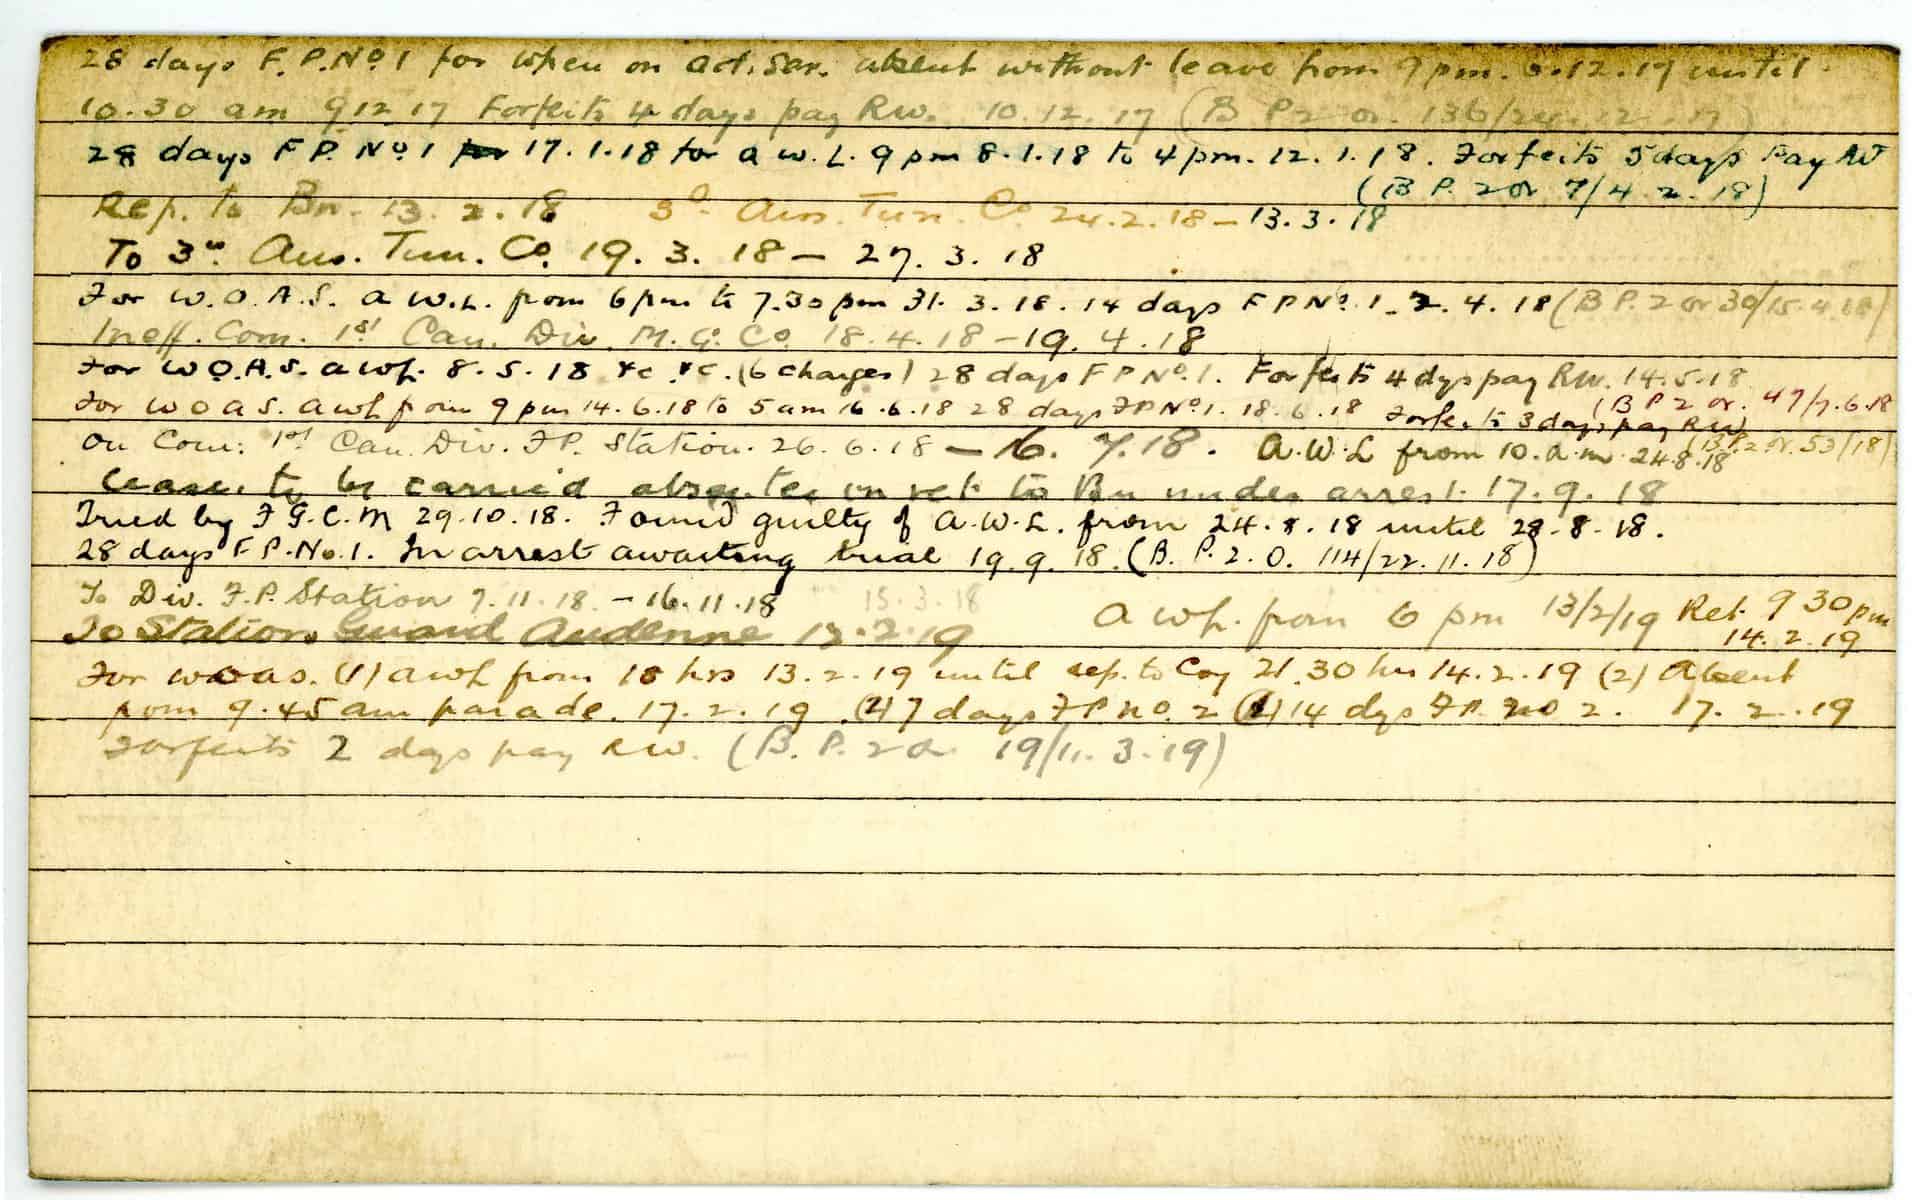 28 days F.P.No 1 for when on act. Ser. absent without leave from 9 pm. 6.12.17 until
10.30 am 9 12 17 Forfeits 4 days pay RW. 10.12.17 (B P2 or. 136/24.12.17)
28 days F P. No 1 for 17.1.18 for a w. L. 9 pm 8.1.18 to 4 pm. 12.1.18. Forfeits 5 days Pay RW
(B P. 2 or 7/4.2.18)
Rep. to Bn. 13.2.18 3d. Aus. Tun. Co 24.2.18 – 13.3.18
To 3rd. Aus. Tun. Co. 19.3.18 – 27.3.18
For W.O.A.S. a W.L. from 6 pm to 7.30 pm 31.3.18. 14 days F P No. 1. 2.4.18 (B P. 2 or 30/15.4.18)
Ineff. Com. 1st Can. Div. M.G. Co. 18.4.18 – 19.4.18
For W O.A.S. awl. 8.5.18 &c &c. (6 charges) 28 days F P No. 1. Forfeits 4 dys pay RW. 14.5.18
(B P 2 or. 47/7.6.18
For W O A S. awl from 9 pm 14.6.18 to 5 am 16.6.18 28 days FP No 1. 18.6.18 Forfeits 3 days pay RW
(B P. 2 or. 53/18)
On Com: 1st Can. Div. F P. Station. 26.6.18 – 16.7.18. A.W.L from 10. a.m. 24.8.18
Ceases to be carried absentee on ret. to Bn under arrest. 17.9.18
Tried by F G.C.M 29.10.18. Found guilty of A.W.L. from 24.8.18 until 28.8.18.
28 days F P. No. 1. In arrest awaiting trial 19.9.18. (B. P. 2. O. 114/22.11.18)
To Div. F.P. Station 7.11.18. – 16.11.18 15.3.18
a wl. from 6 pm 13/2/19 Ret. 9 30 pm
14.2.19
To Station Guard Andenne 13.2.19
For woas. (1) awl from 18 hrs 13.2.19 until rep. to Coy 21.30 hrs 14.2.19 (2) Absent
from 9.45 am parade. 17.2.19 (2) 7 days F P No. 2 (1) 14 dys F P. No 2. 17.2.19
Forfeits 2 days pay RW. (B. P. 2 or 19/11.3.19)